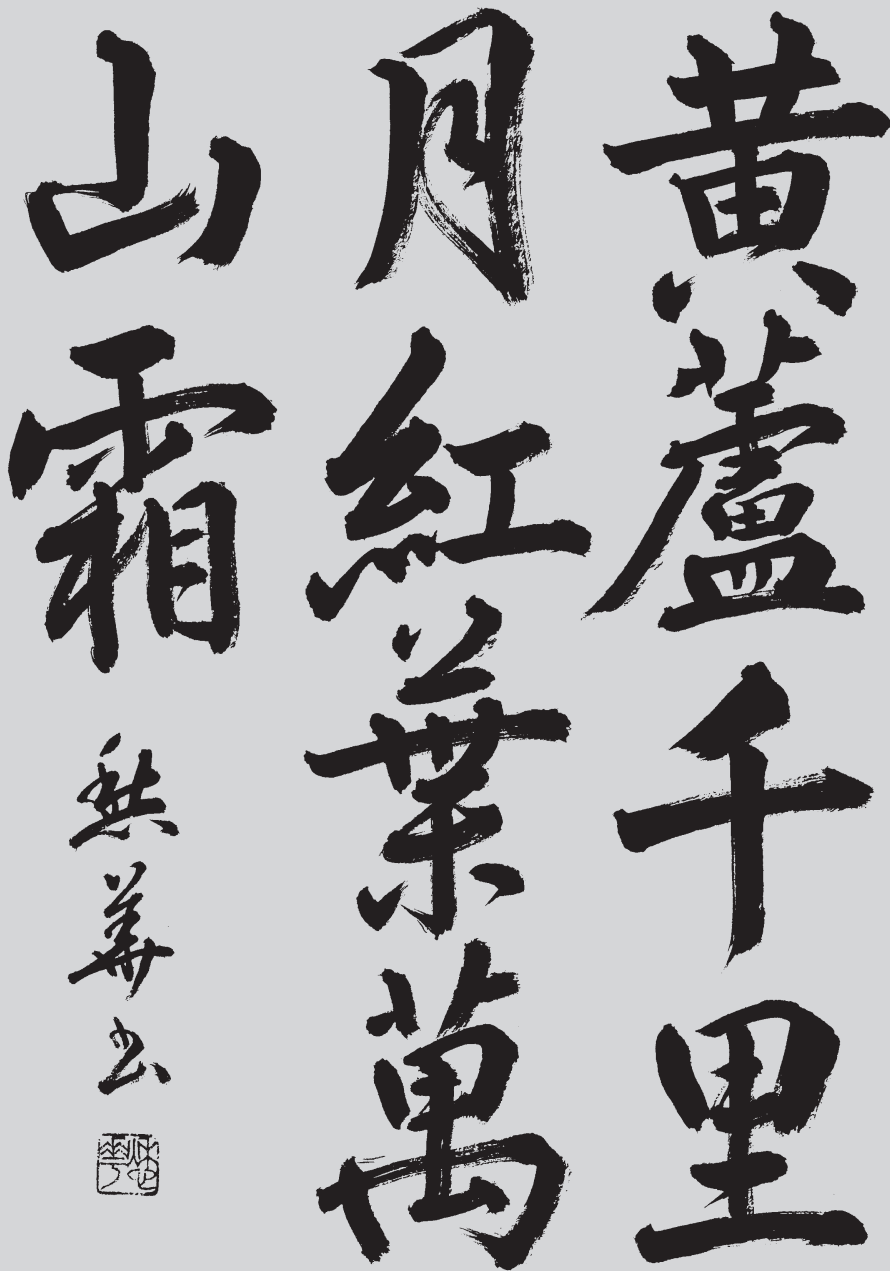 黄蘆千里
月紅葉萬
山霜
華書